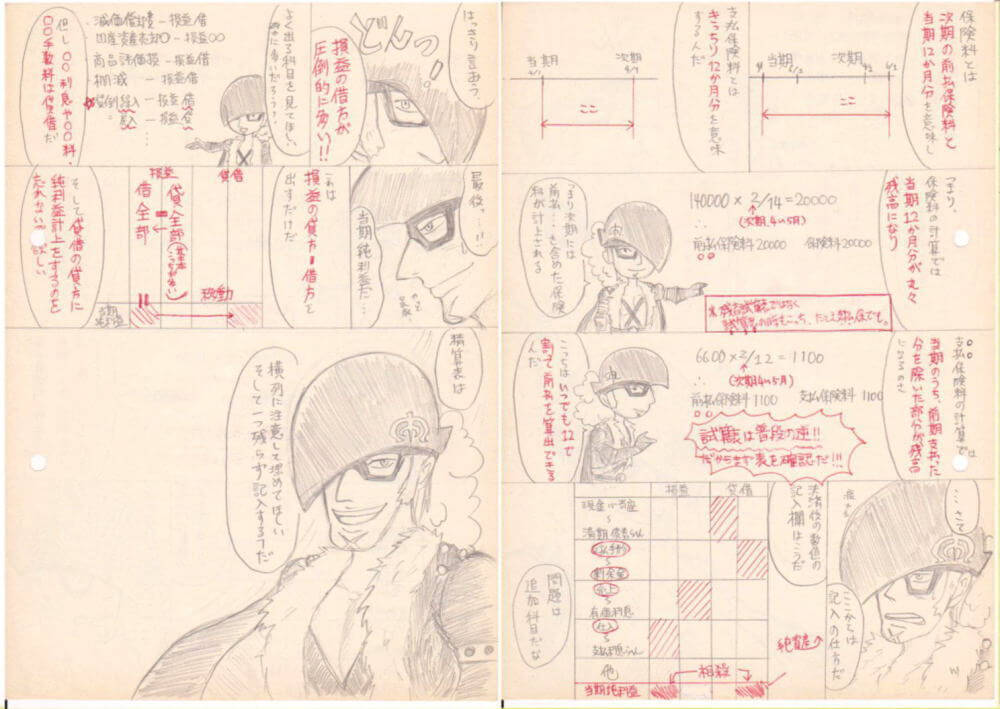 保険料とは
次期の前払保険料と
当期12か月分を意味し
当期
次期
ここ
支払保険料とは
きっちり12か月分を意味
するんだ
当期
次期
ここ
つまり、
保険料の計算では
当期12か月分が元々
残高になり
140000 × 2/14 = 20000
(次期4〜5月)
∴
前払保険料20000
保険料20000
つまり次期には
前払…も含めた保険
料が計上される
支払保険料の計算では
当期のうち、前期支払った
分を除いた部分が残高
になるのさ
6600 × 2/12 = 1100
(次期4〜5月)
∴
前払保険料 1100
支払保険料 1100
こっちはいつでも12で
割って前払を算出できる
んだ
試験は普段の逆!!
だからまず表を確認だ!!!
…さて
ここからは
記入の仕方だ
決済後の数値の
記入欄はこうだ
損益
貸借
売上
仕入
他
当期純利益
相殺
純資産
問題は
追加科目だな
はっきり言おう。
どんっ
損益の借方が
圧倒的に多い!!
よく出る科目を見てほしい
減価償却費 ー 損益借
商品評価損 ー 損益借
棚減 ー 損益借
貸倒繰入 ー 損益借
但し〇〇利息や〇〇料、
〇〇手数料は貸借だ
最後っ…!!
当期純利益だ…
これは
損益の貸方−借方と
出すだけだ
損益
貸借
貸全部
借全部
移動
そして貸借の貸方に
純利益計上をするのを
忘れないでほしい
精算表は
横列に注意して埋めてほしい
そして一つ残らず記入するんだ